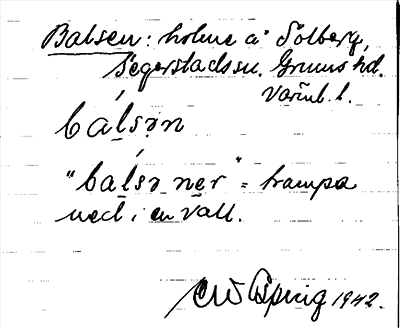 Balsen: holme å Sölberg,
Segerstads sn. Grums hd.
Värml. l.
bálsən
"bálsə ner" = trampa
ned i en vall.
1942.